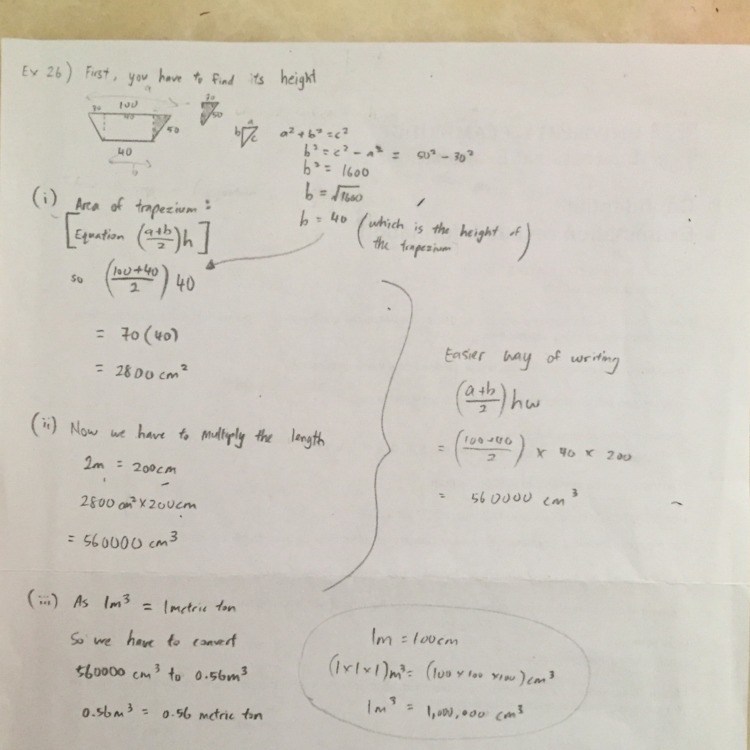 Ex 2b) First, you have to find its height
a
100
30
40
50
40
b
30
50
a
b c
a² + b² = c²
b² = c² - a² = 50² - 30²
b² = 1600
b = √1600
b = 40 (which is the height of the trapezium)
(i) Area of trapezium:
[Equation (a+b/2)h]
so (100+40/2) 40
= 70(40)
= 2800 cm²
(ii) Now we have to multiply the length
2m = 200cm
2800 cm² × 200cm
= 560000 cm³
Easier way of writing
(a+b/2) hw
= (100+40/2) × 40 × 200
= 560000 cm³
(iii) As 1m³ = 1 metric ton
So we have to convert
560000 cm³ to 0.56m³
0.56m³ = 0.56 metric ton
1m = 100cm
(1×1×1)m³ = (100 × 100 × 100)cm³
1m³ = 1,000,000 cm³